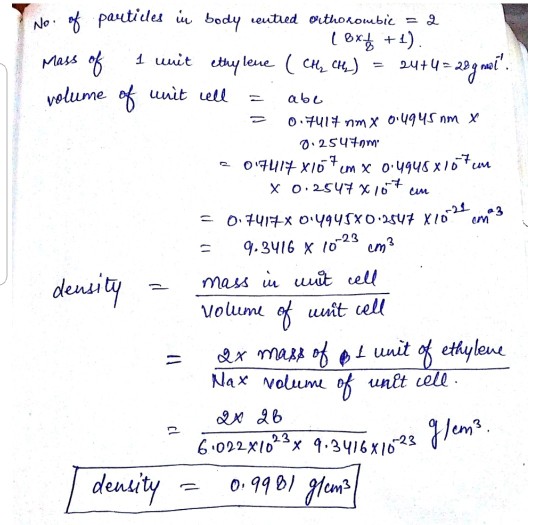 No. of particles in body centred orthorombic = 2
( 8x 1/8 + 1).
Mass of 1 unit ethylene ( CH2 CH2) = 24+4 = 28g mol⁻¹.
volume of unit cell = abc
= 0.7417 nm x 0.4945 nm x
0.2547nm
= 0.7417 x10⁻⁷ cm x 0.4945 x10⁻⁷ cm
x 0.2547 x 10⁻⁷ cm
= 0.7417x 0.4945x0.2547 x10⁻²¹ cm³
= 9.3416 x 10⁻²³ cm³
density = mass in unit cell
volume of unit cell
= 2x mass of 1 unit of ethylene
Nax volume of unit cell.
= 2x 28
6.022x10²³ x 9.3416x10⁻²³ g/cm³.
density = 0.9981 g/cm³